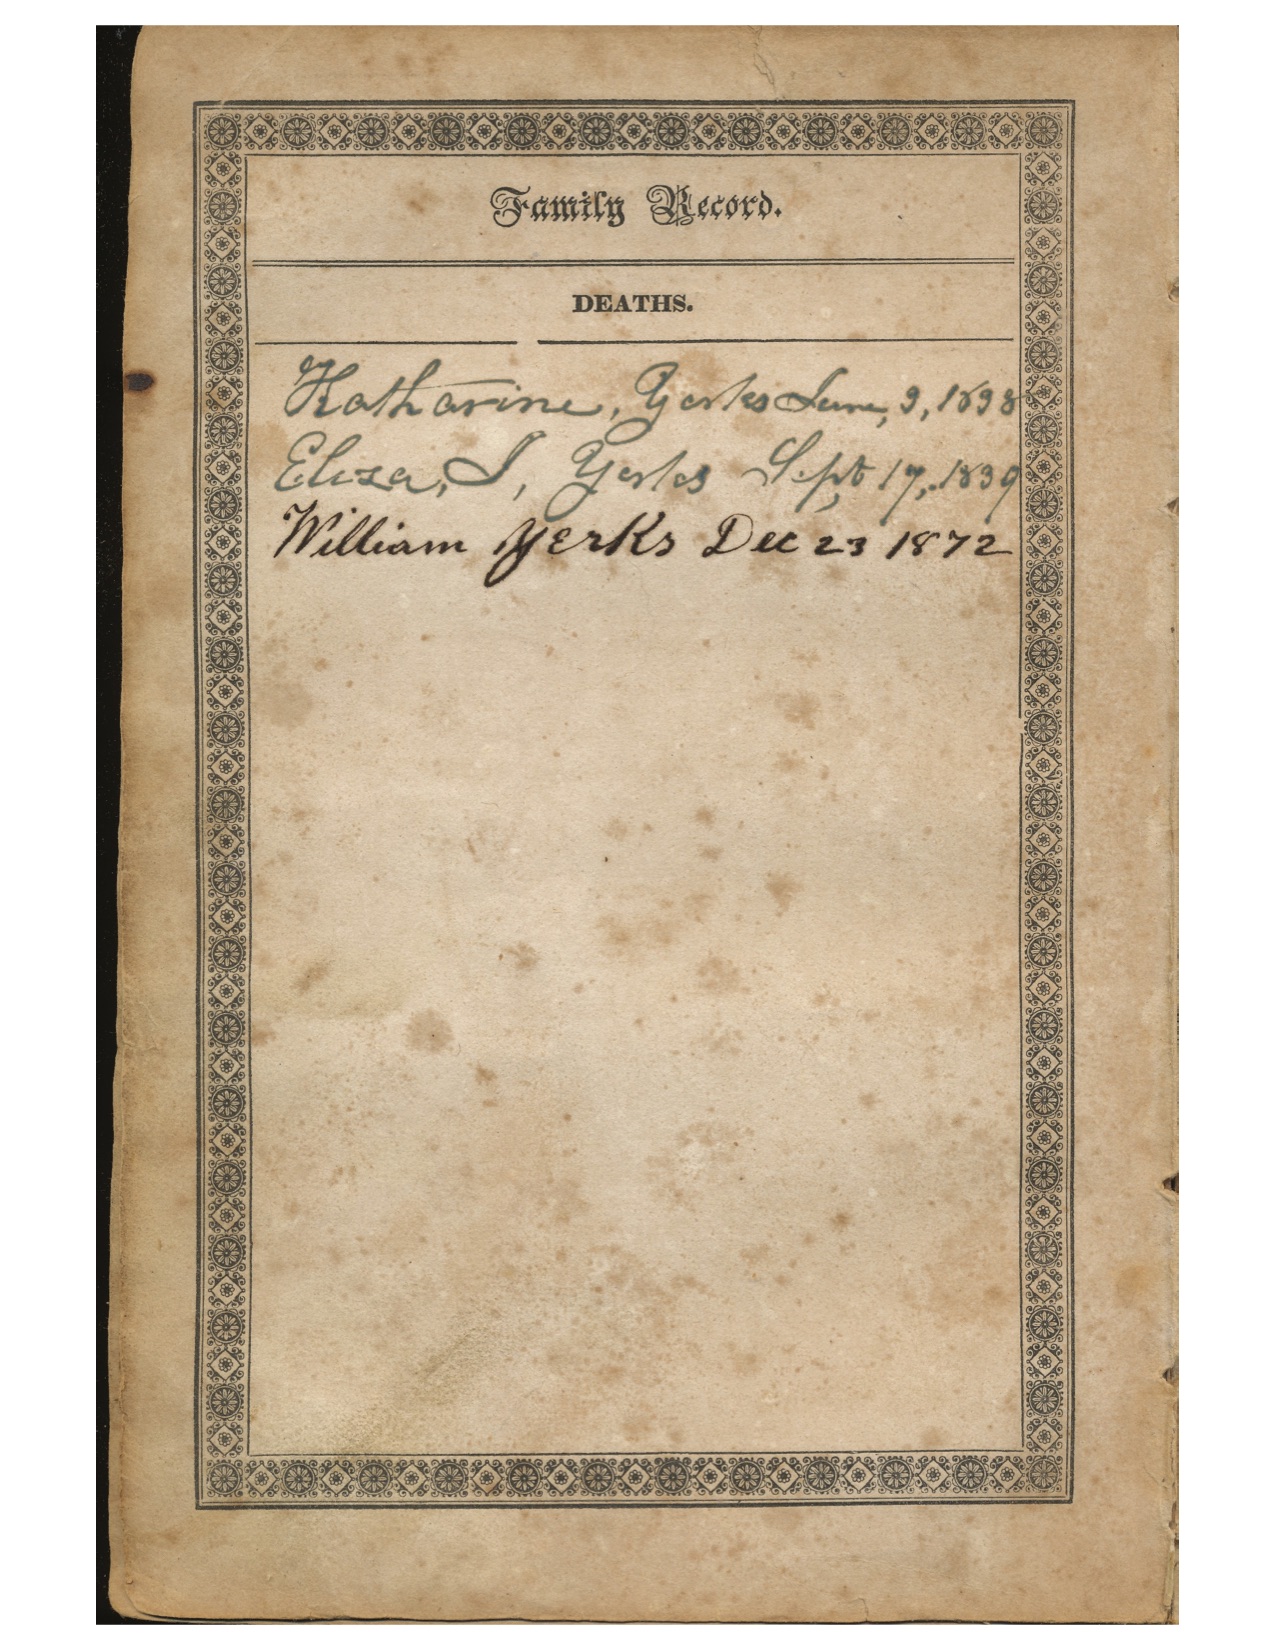 Family Record.
DEATHS.
Katharine, Yerks June, 9, 1838
Eliza, J, Yerks Sept 17, 1839
William Yerks Dec 23 1872